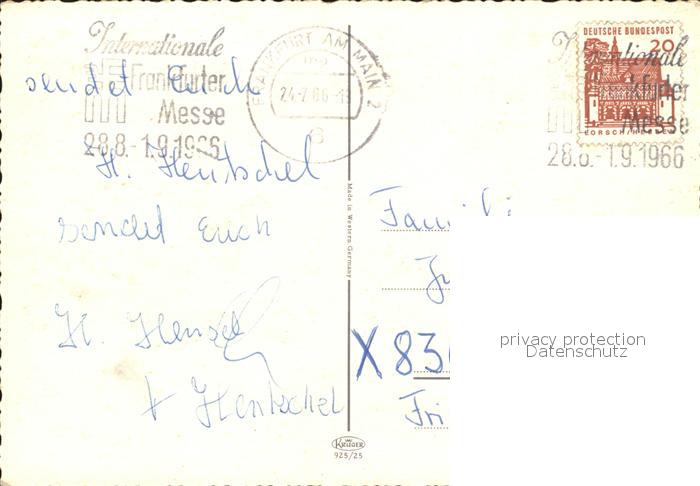 Internationale
Frankfurter
Messe
28.8.-1.9.1966
FRANKFURT AM MAIN 2
24.-7.66-19
DEUTSCHE BUNDESPOST
20
LORSCH/HESSEN
Internationale
Frankfurter
Messe
28.8.-1.9.1966
sendet Euch
H. Hentschel
sendet Euch
H. Hensel
+ Hentschel
Made in Western Germany
Famili
X 83
Fri
privacy protection
Datenschutz
KRÜGER
925/25